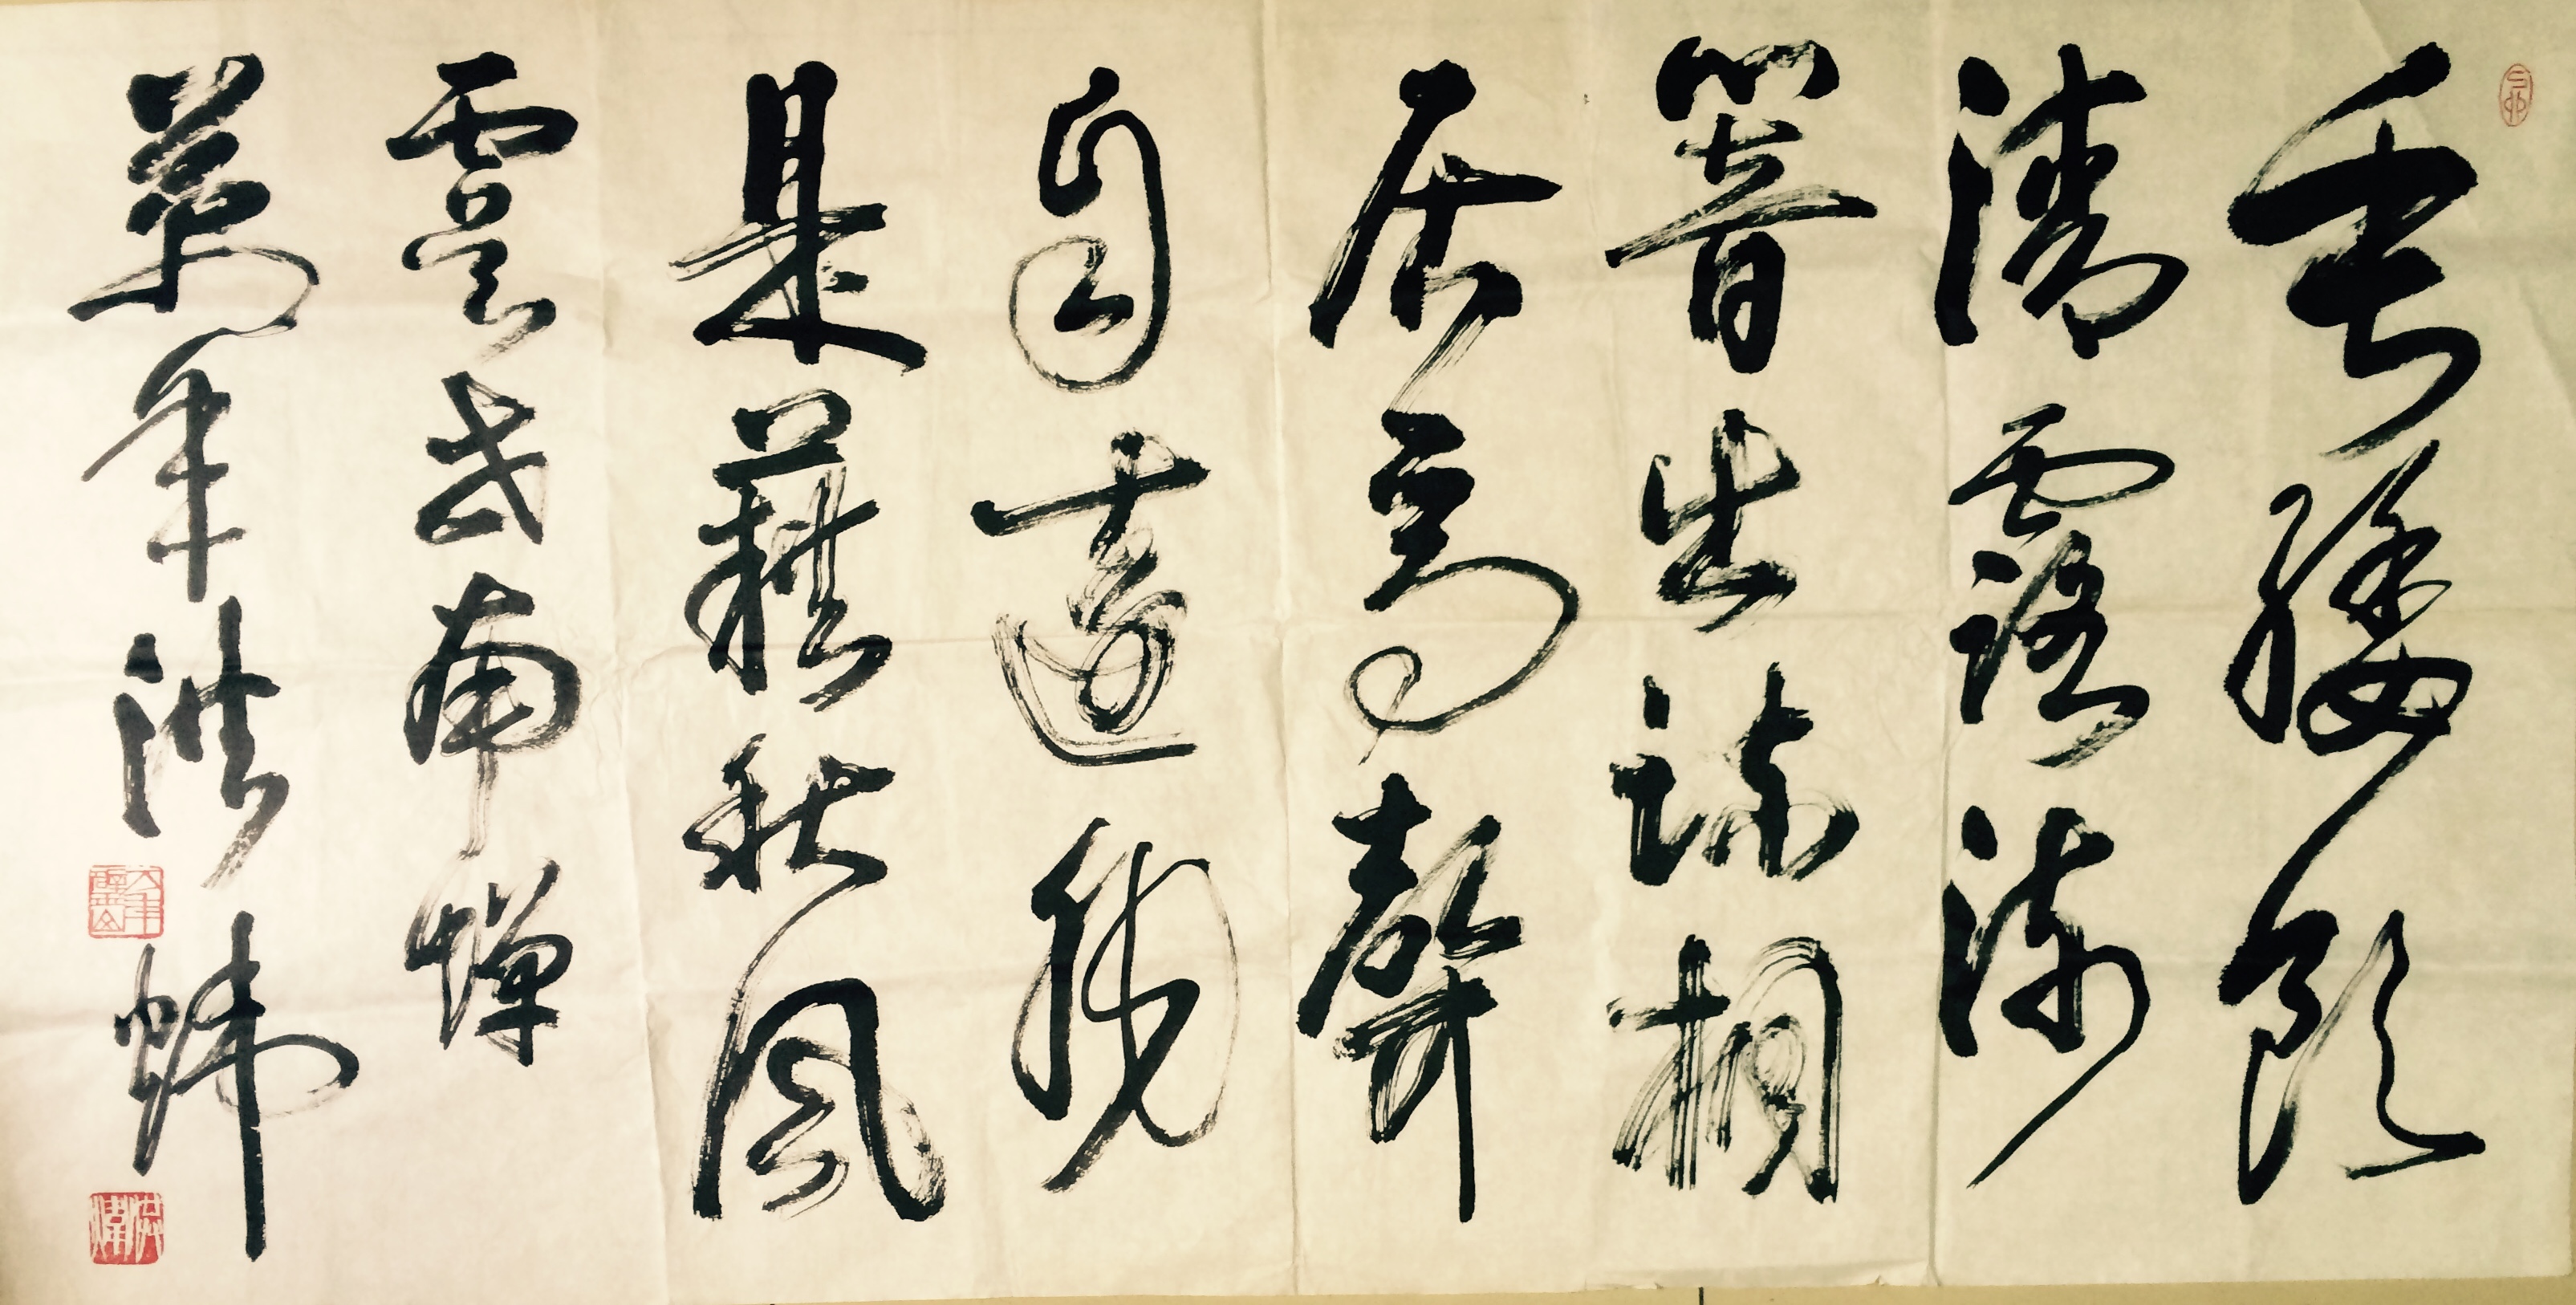 垂緌飲
清露流
響出疏桐
居高聲
自遠非
是藉秋風
虞世南蟬
萬年洪煒
洪煒